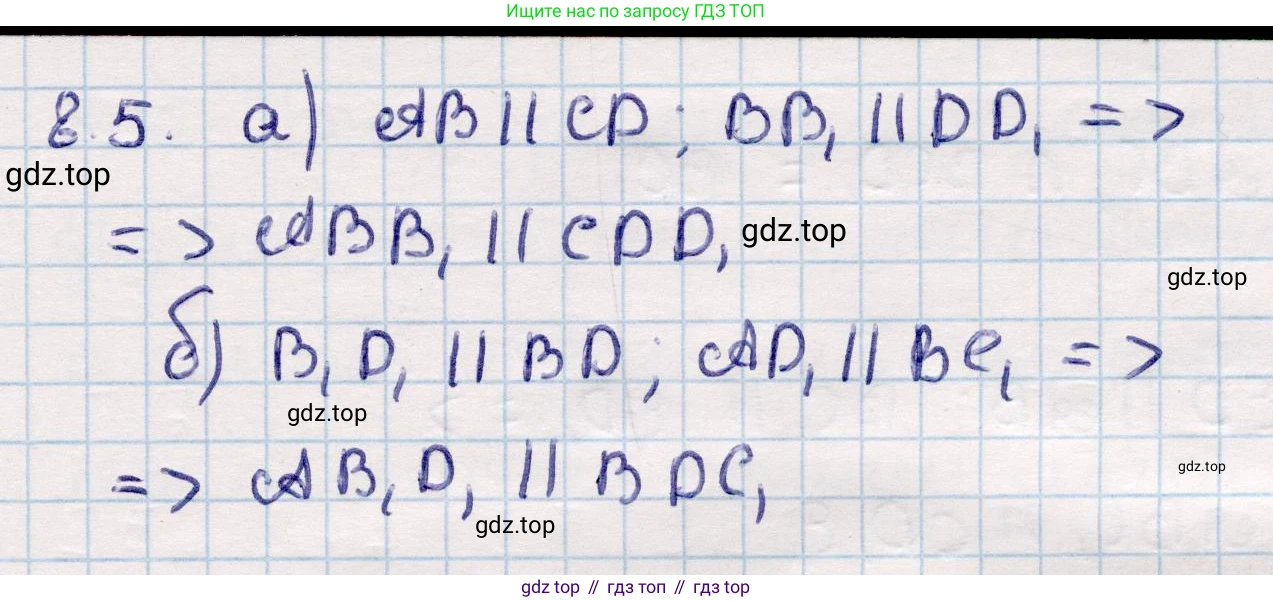 Ищите нас по запросу ГДЗ ТОП
8.5. а) AB || CD; BB₁ || DD₁ =>
gdz.top
=> ABB₁ || CDD₁ gdz.top
gdz.top
б) B₁D₁ || BD; AD₁ || BC₁ =>
gdz.top
=> AB₁D₁ || BDC₁
gdz.top
gdz.top
gdz top // гдз топ // gdz top